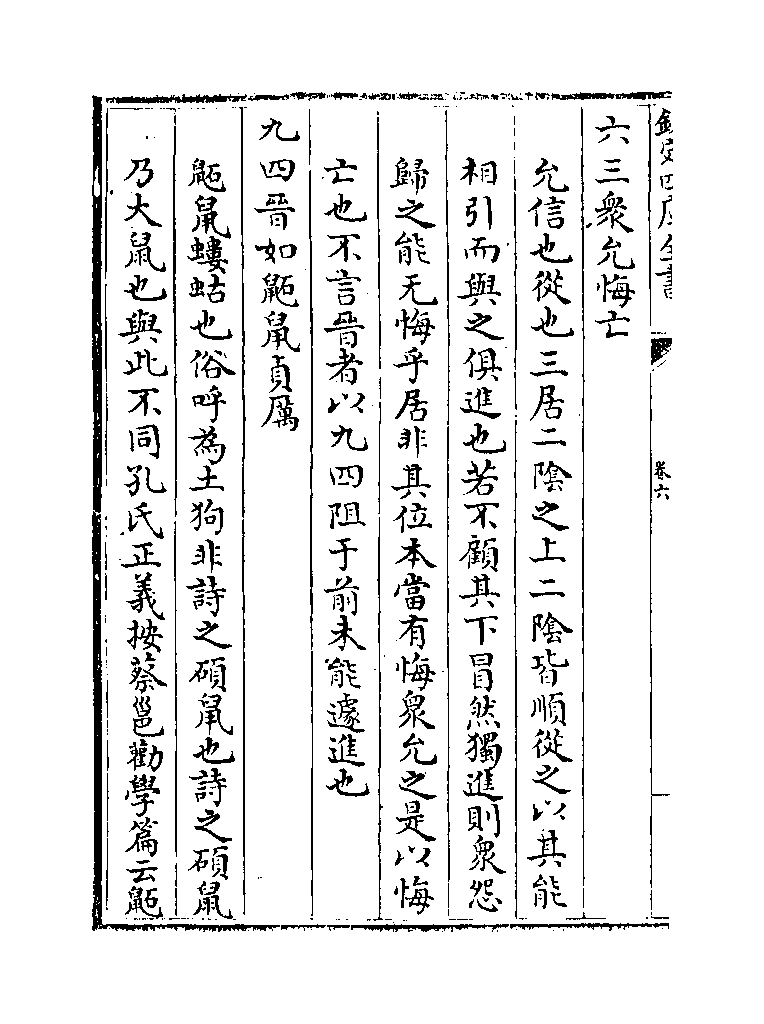 欽定四庫全書
卷六
六三衆允悔亡
允信也從也三居二陰之上二陰皆順從之以其能
相引而與之俱進也若不顧其下冒然獨進則衆怨
歸之能无悔乎居非其位本當有悔衆允之是以悔
亡也不言晉者以九四阻于前未能遽進也
九四晉如鼫鼠貞厲
鼫鼠螻蛄也俗呼為土狗非詩之碩鼠也詩之碩鼠
乃大鼠也與此不同孔氏正義按蔡邕勸學篇云鼫